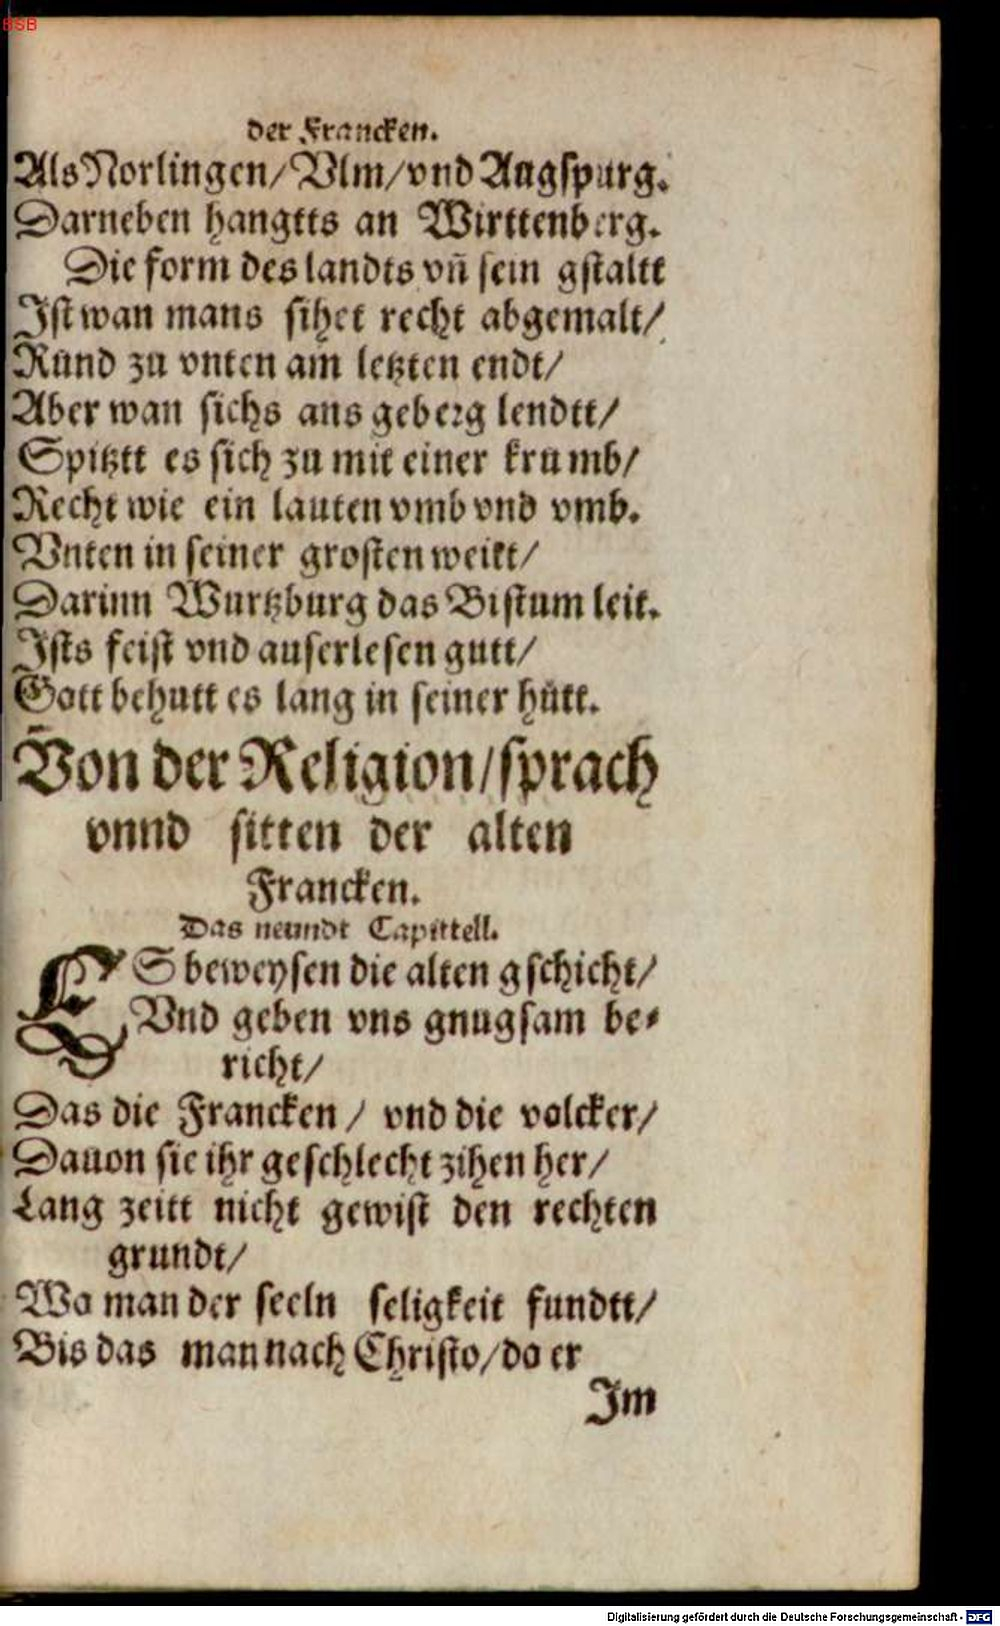 BSB
der Francken.
Als Norlingen/ Vlm/ vnd Augspurg.
Darneben hangtts an Wirttenberg.
Die form des landts vñ sein gstaltt
Ist wan mans sihet recht abgemalt/
Rund zu vnten am letzten endt/
Aber wan sichs ans geberg lendtt/
Spitztt es sich zu mit einer krumb/
Recht wie ein lauten vmb vnd vmb.
Vnten in seiner grosten weitt/
Darinn Wurtzburg das Bistum leit.
Ists feist vnd auserlesen gutt/
Gott behutt es lang in seiner hütt.
Von der Religion/ sprach
vnnd sitten der alten
Francken.
Das neundt Capittell.
ES beweysen die alten gschicht/
Vnd geben vns gnugsam be⸗
richt/
Das die Francken / vnd die volcker/
Dauon sie ihr geschlecht zihen her/
Lang zeitt nicht gewist den rechten
grundt/
Wo man der seeln seligkeit fundtt/
Bis das man nach Christo/ do er
Im
Digitalisierung gefördert durch die Deutsche Forschungsgemeinschaft - DFG